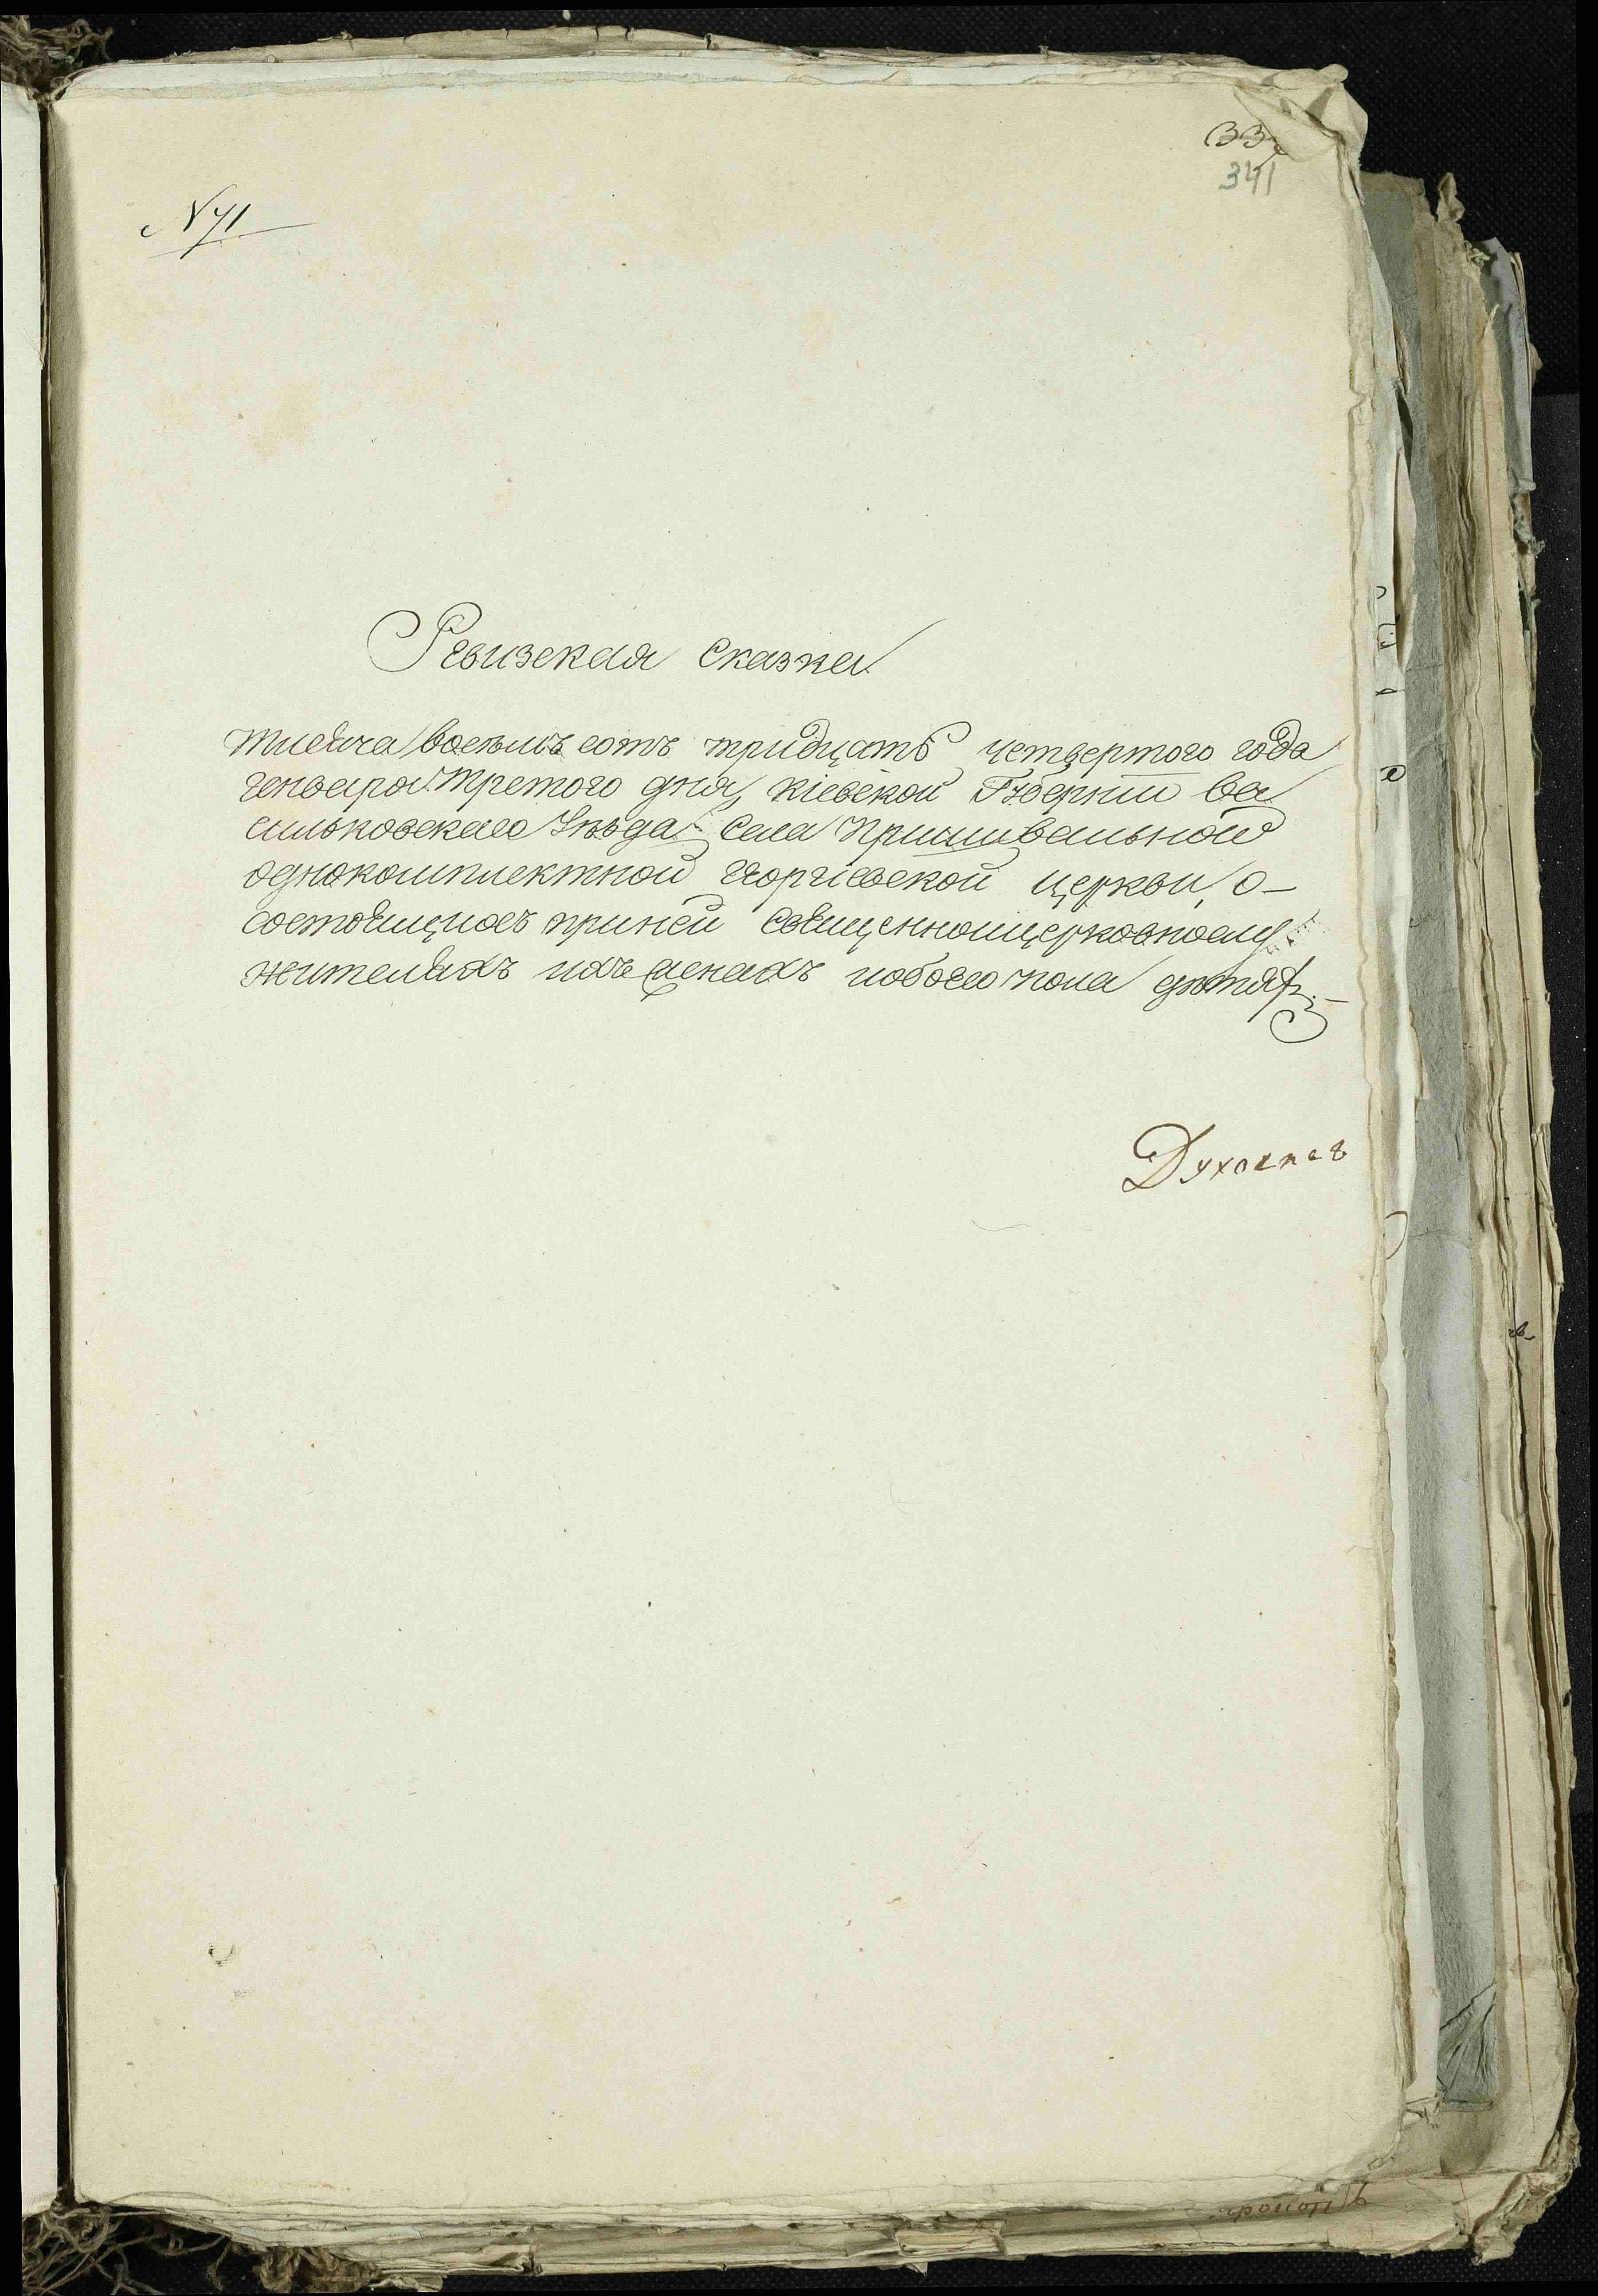 341
N 71
Ревизская сказка
тисяча восемь сотъ тридцать четвертого года
генваря третого дня, кіевской Губерніи ва
сильковскаго Уезда села Пришивальной
однокомплектной Георгіевской церкви, о-
состоящихъ приней священноицерковнослу
жителяхъ ихъ женахъ иобоего пола детяхъ.